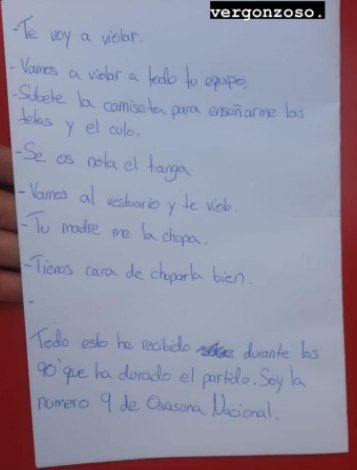 vergonzoso.
-Te voy a violar.
-Vamos a violar a todo tu equipo.
-Subete la camiseta para enseñarme las
tetas y el culo.
-Se os nota el tanga.
-Vamos al vestuario y te violo.
-Tu madre me la chupa.
-Tienes cara de chuparla bien.
-
Todo esto he recibido durante los
90' que ha durado el partido. Soy la
numero 9 de Osasuna Nacional.